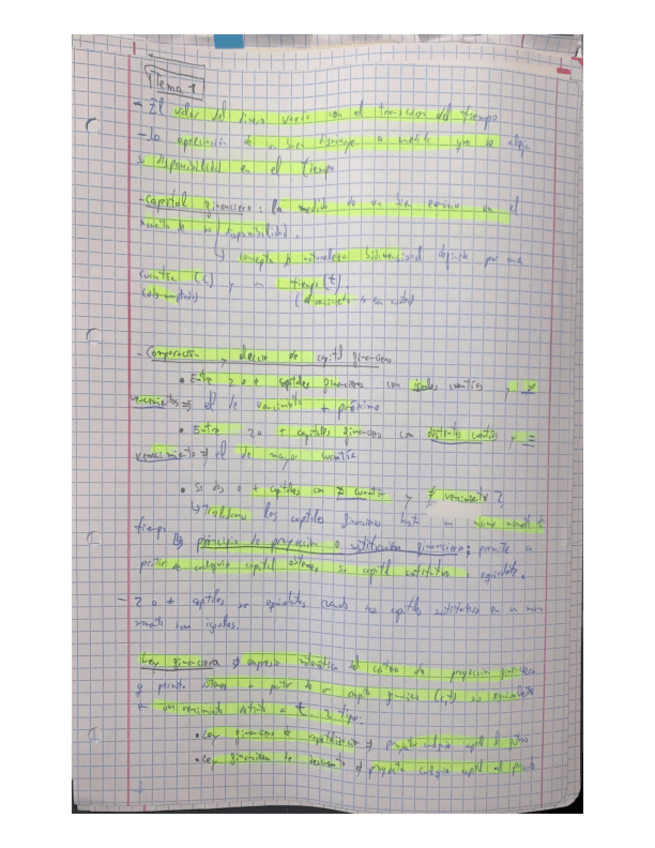 Tema 1
- El valor del dinero varía con el transcurso del tiempo
- La apreciación de un bien disminuye a medida que se aleja
su disponibilidad en el tiempo
- capital financiero: la medida de un bien económico en el
momento de su disponibilidad.
↳ concepto de naturaleza bidimensional definida por una
cuantía (C) y un tiempo (t).
- Comparación y elección de capital financiero
• Entre 2 o + capitales financieros con iguales cuantías y ≠
vencimientos ⇒ el de vencimiento + próximo
• Entre 2 o + capitales financieros con distintas cuantías y =
vencimiento ⇒ el de mayor cuantía
• Si 2 o + capitales con ≠ cuantía y ≠ vencimiento?
↳ Trasladamos los capitales financieros hasta un mismo momento de
tiempo principio de proyección o sustitución financiera: permite a
partir de cualquier capital obtener su capital sustitutivo o equivalente.
- 2 o + capitales son equivalentes cuando sus capitales sustitutivos en un mismo
momento son iguales.
Ley financiera ⇒ expresión matemática del criterio de proyección financiera
q permite obtener a partir de un capital financiero (C,t) su equivalente
en un vencimiento distinto a t. 2 tipos:
• Ley financiera de capitalización ⇒ proyecta cualquier capital al futuro
• Ley financiera de descuento ⇒ proyecta cualquier capital al presente